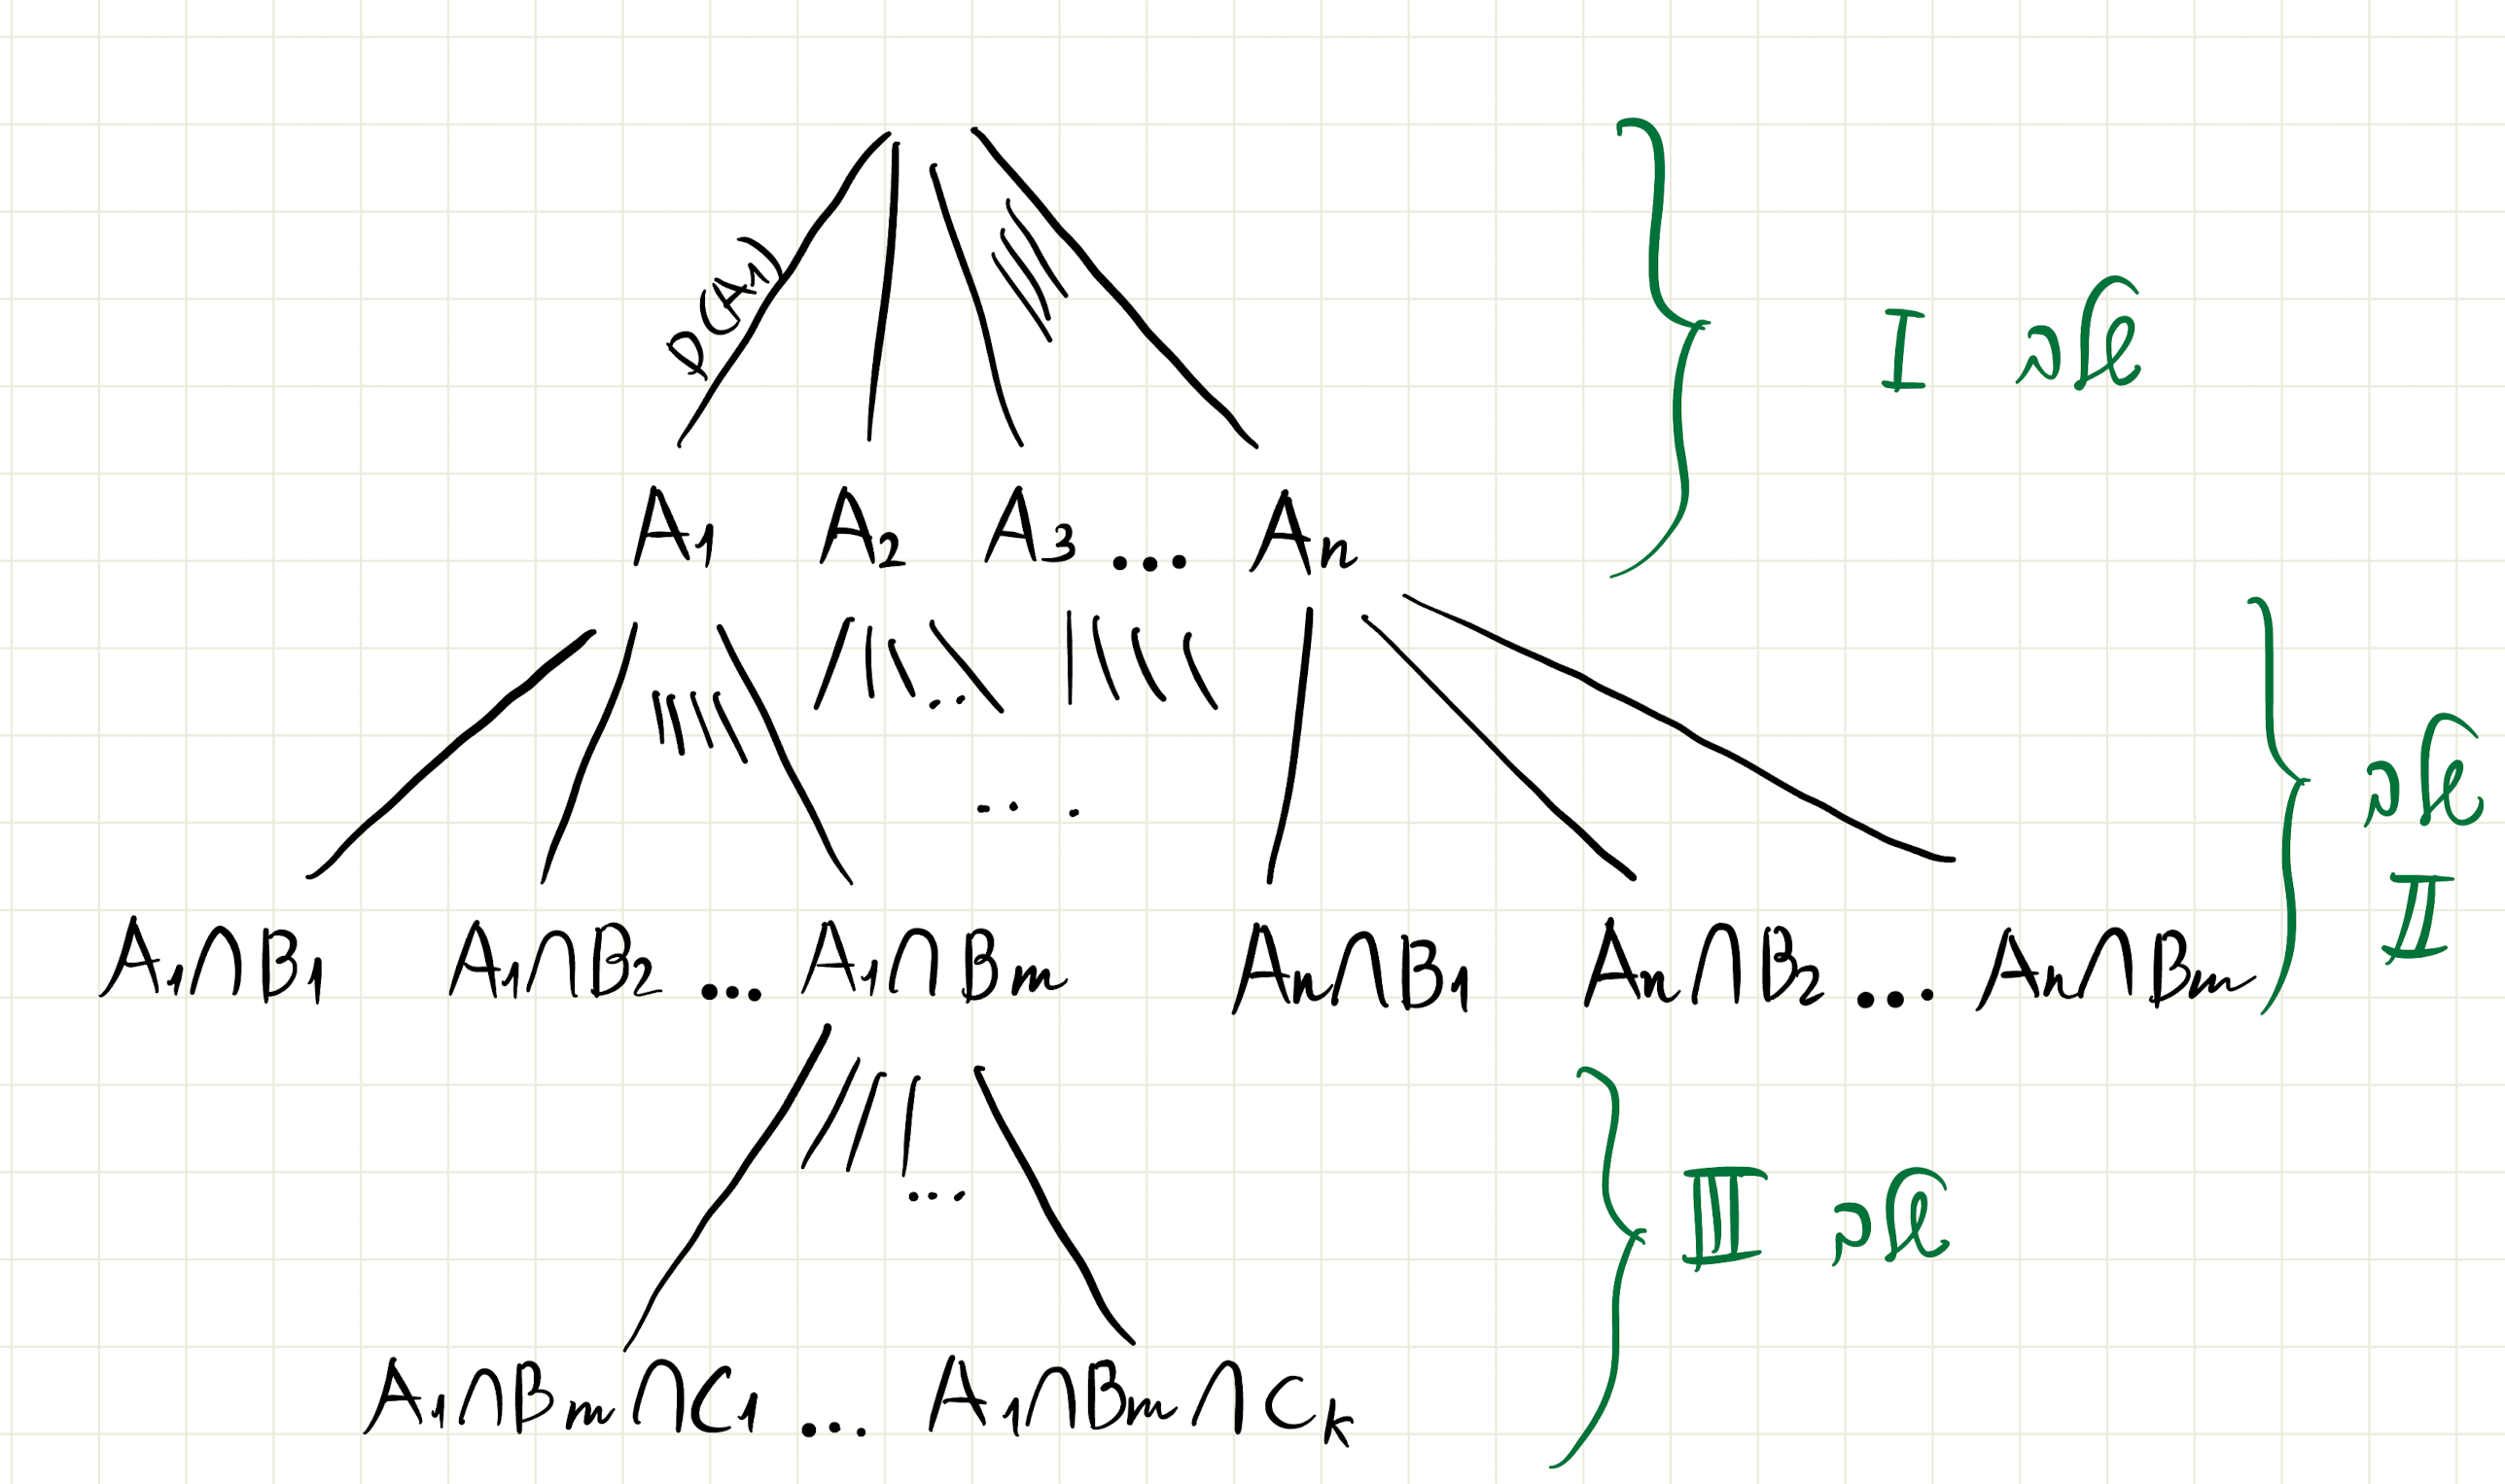 P(A₁)
שלב I
A₁ A₂ A₃ ... Aₙ
שלב
II
A₁∩B₁ A₁∩B₂ ... A₁∩Bₘ Aₙ∩B₁ Aₙ∩B₂ ... Aₙ∩Bₘ
שלב III
A₁∩Bₘ∩C₁ ... A₁∩Bₘ∩Cₖ